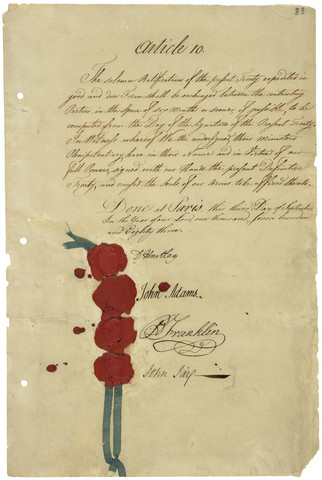 33
Article 10.
The solemn Ratifications of the present Treaty expedited in
good and due Form shall be exchanged between the contracting
Parties in the Space of Six Months or sooner if possible, to be
computed from the Day of the Signature of the Present Treaty.
In Witness whereof We the undersigned, their Ministers
Plenipotentiary have in their Name and in Virtue of our
Full Powers, signed with our Hands the present Definitive
Treaty, and caused the Seals of our Arms to be affixed thereto.
Done at Paris, this third Day of September
In the Year of our Lord, one thousand, seven hundred
and Eighty three.
D Hartley
John Adams.
B Franklin
John Jay